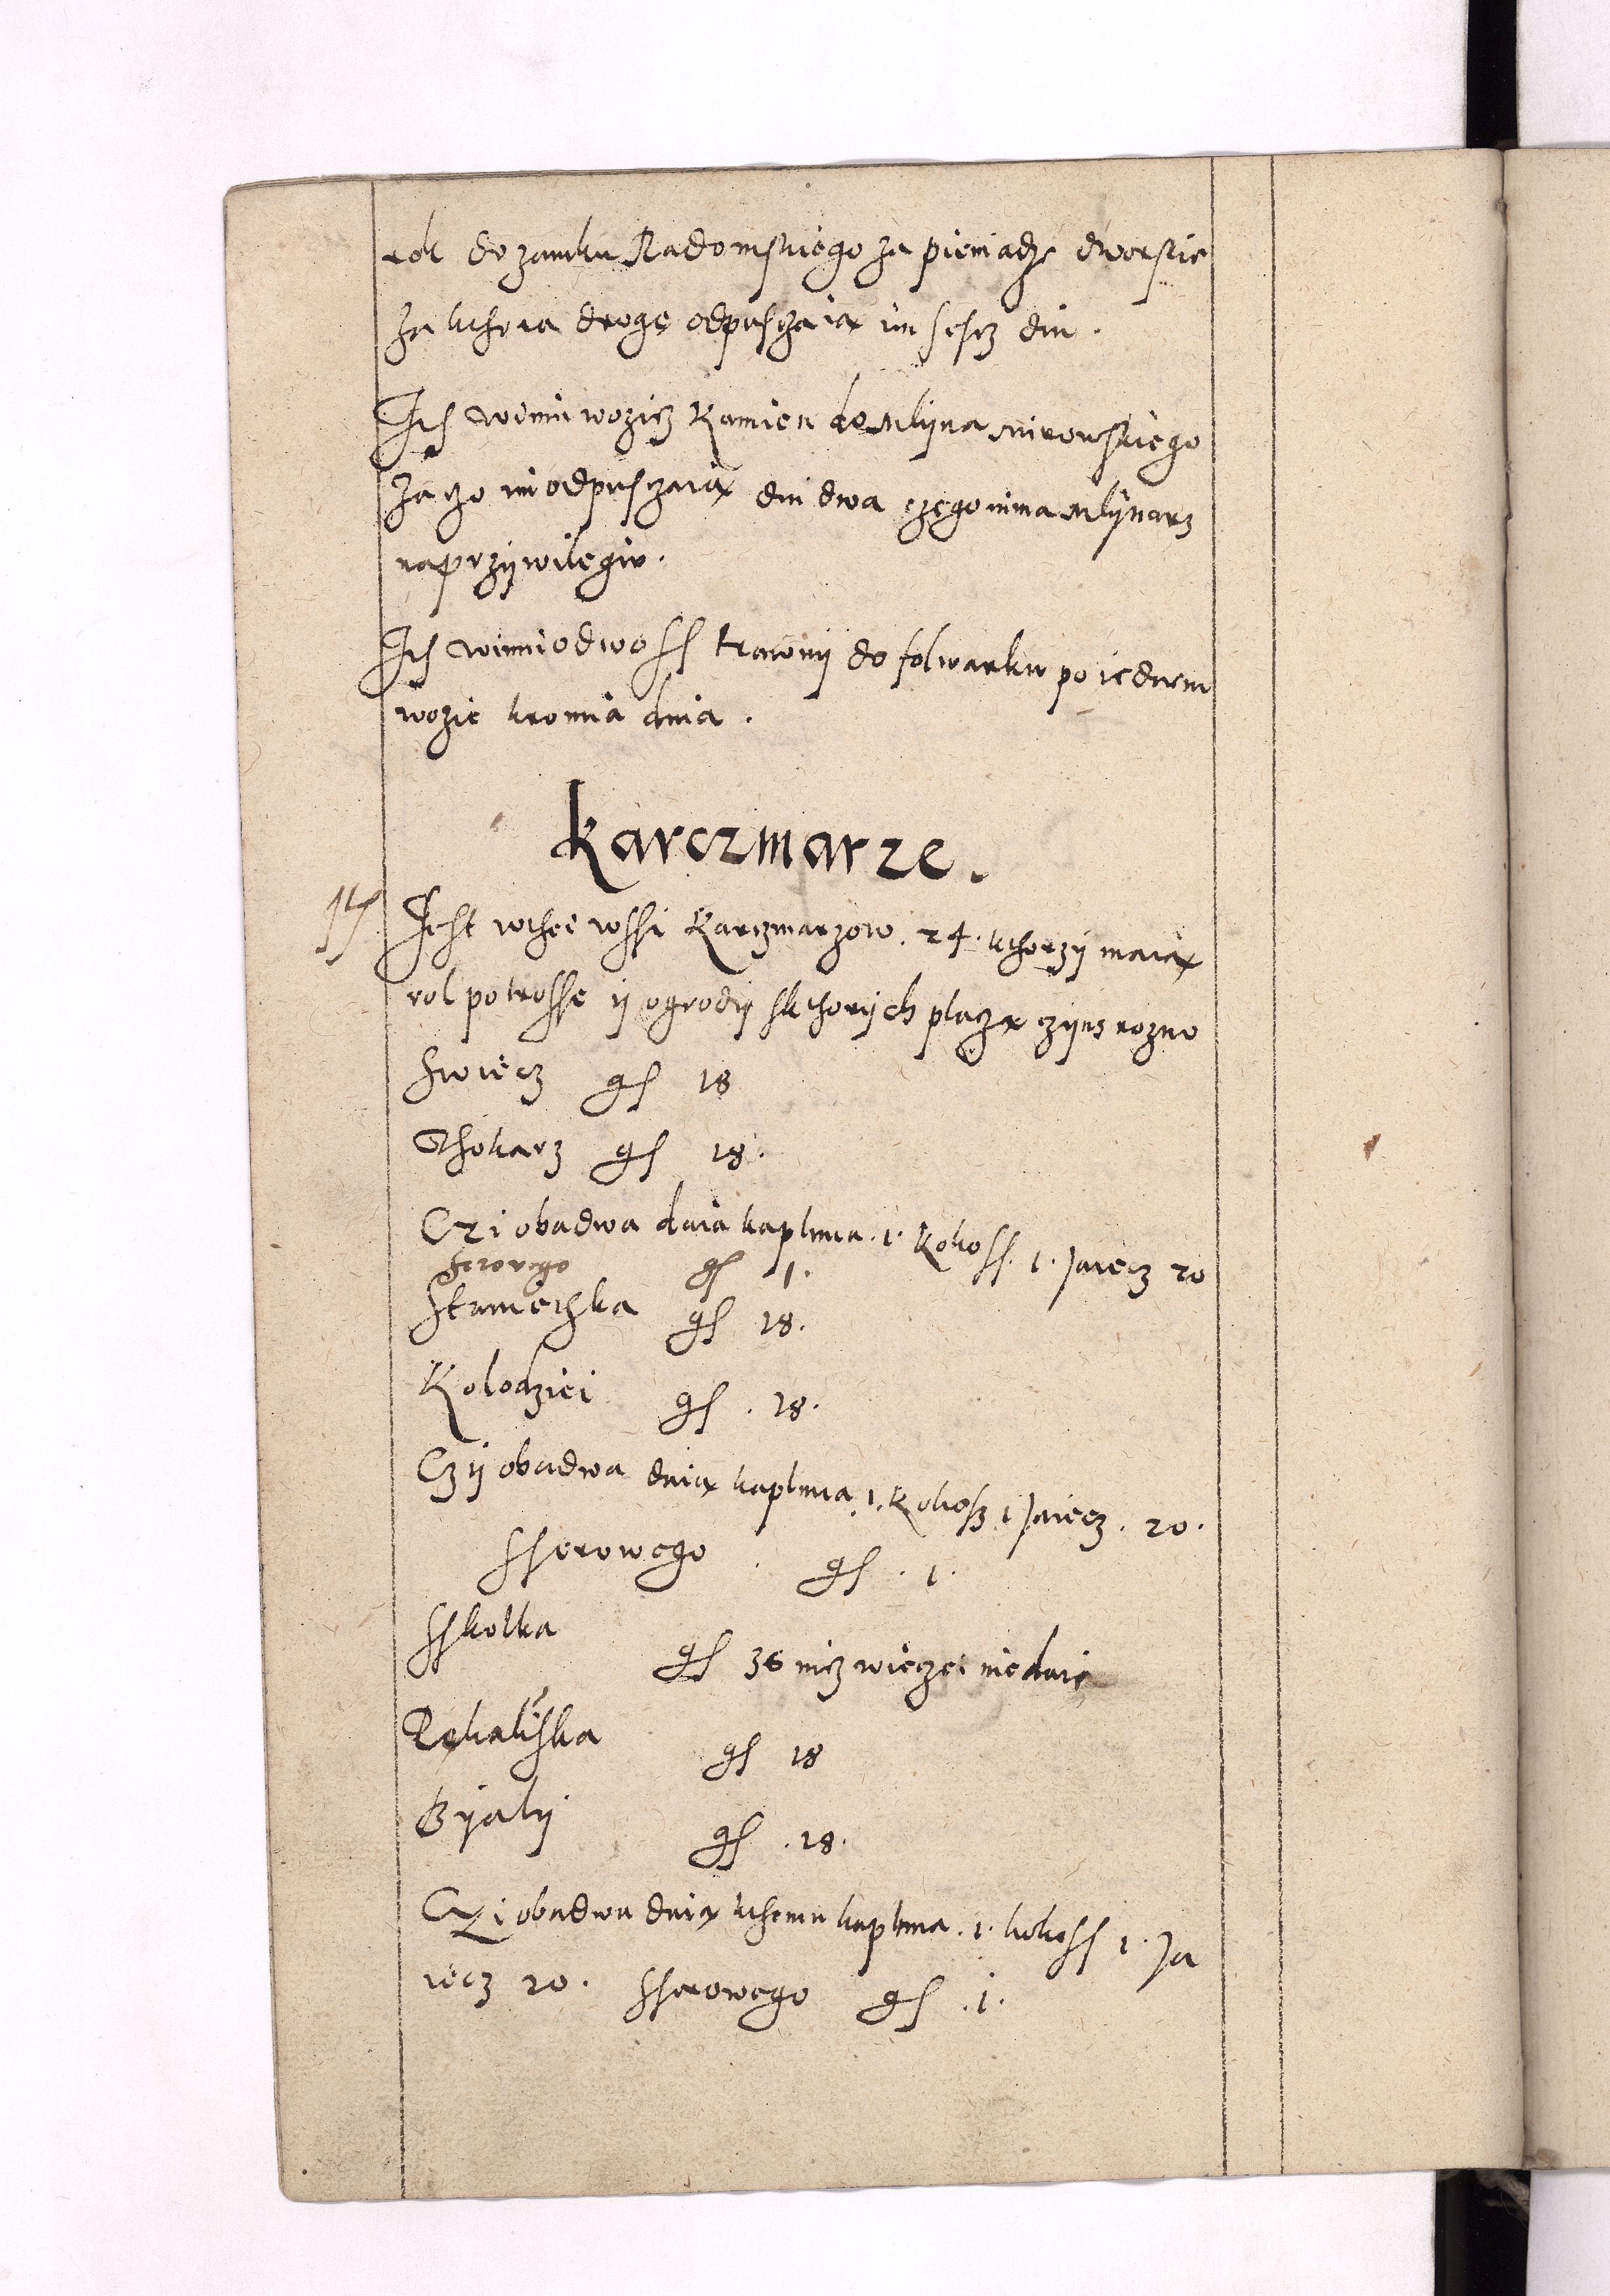 rok do zamku Radomskiego za pieniądze dworskie
za kthora drogę odpusczaią im sescz dni.
Ith winni wozicz kamien do mlyna mirowskiego
za czo im odpusczaią dni dwa czego nima mlynarz
na przywilegiu.
Ith winni odwoss trawny do folwarku po iednem
wozie kromia dnia.
Karczmarze.
17 Jest wthei wssi karczmarzow. 24. kthorzy maią
rol po trosse y ogrody skthorych placzą czyns rozno
Swiecz gs 18
Thokarz gs 18.
Czi obadwa daią kapluna. 1. kokoss. 1. Jaiecz 20
serowego gs 1.
Staniechka gs 18.
Kolodziei gs. 18.
Czy obadwa daią kapluna. 1. kokosz 1 Jaiecz. 20.
sserowego. gs. 1.
Sskolka gs 36 nicz wieczei nie daie
Rękaliska gs 18
Byaly gs. 18.
Czi obadwa daią kthemu kapluna. 1. kokoss 1. Ja
iecz 20. sserowego gs. 1.